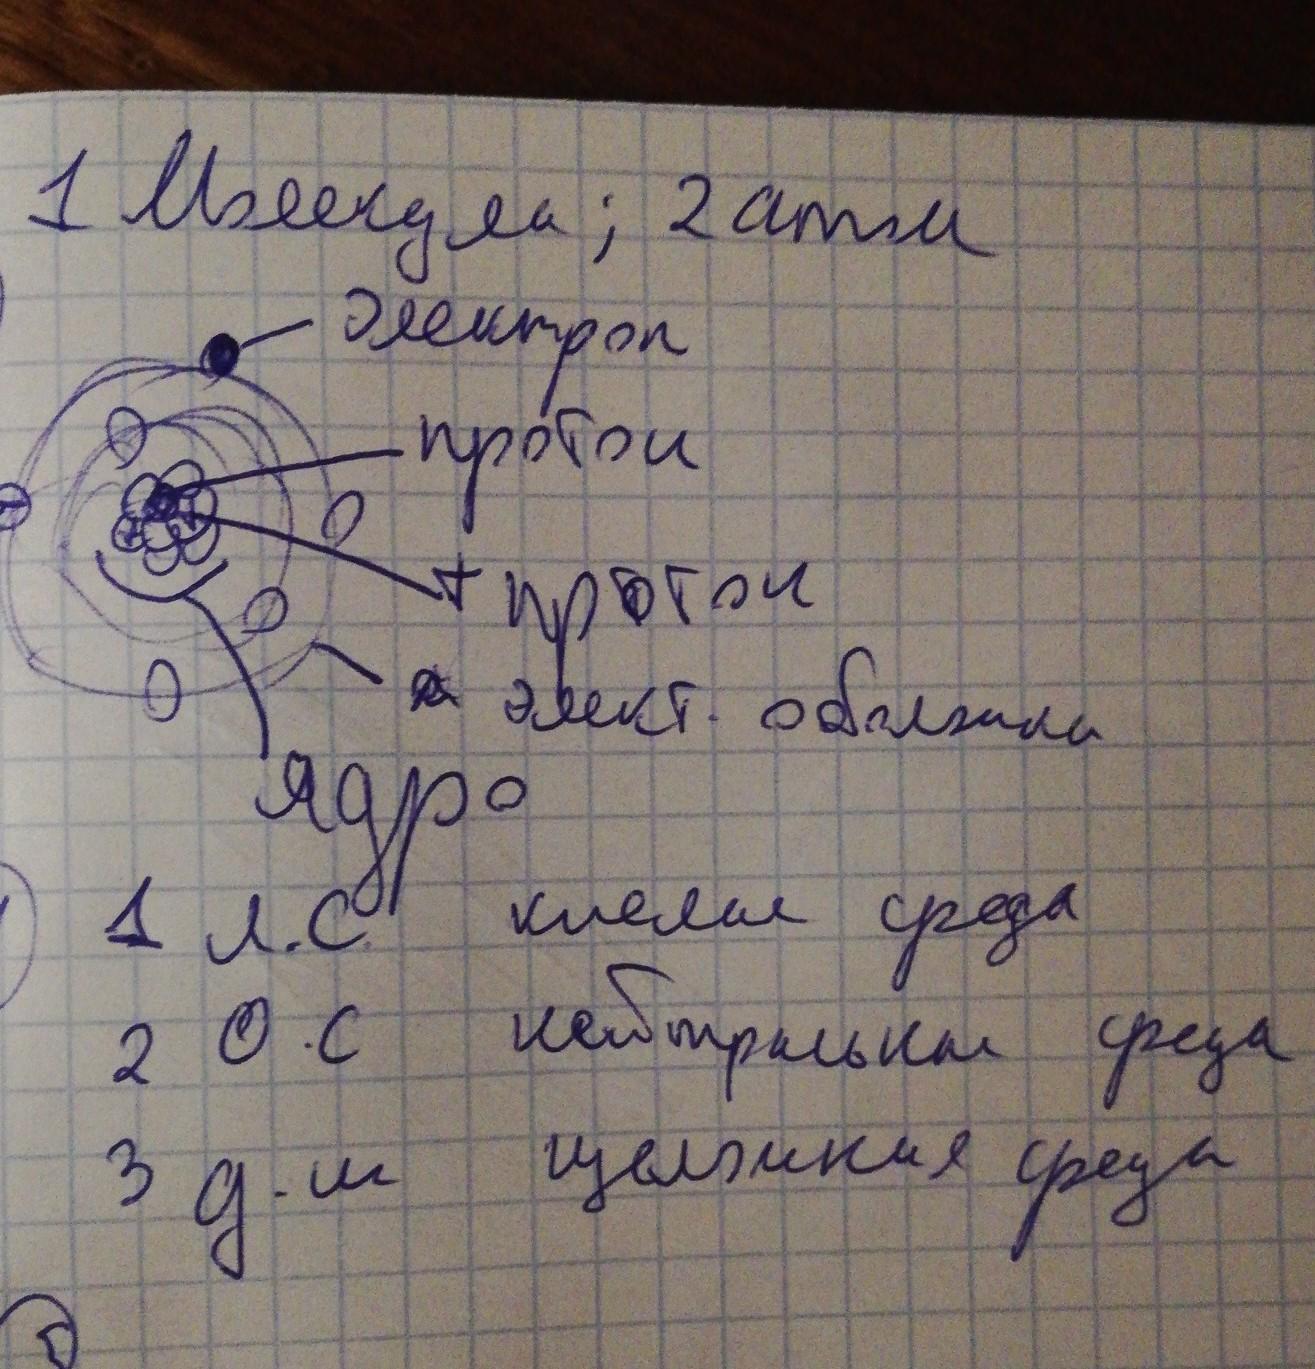 1 Молекула; 2 атом
электрон
протон
+ протон
элект. оболочка
Ядро
1 Л.С. кислая среда
2 О.С нейтральная среда
3 д.м щелочная среда